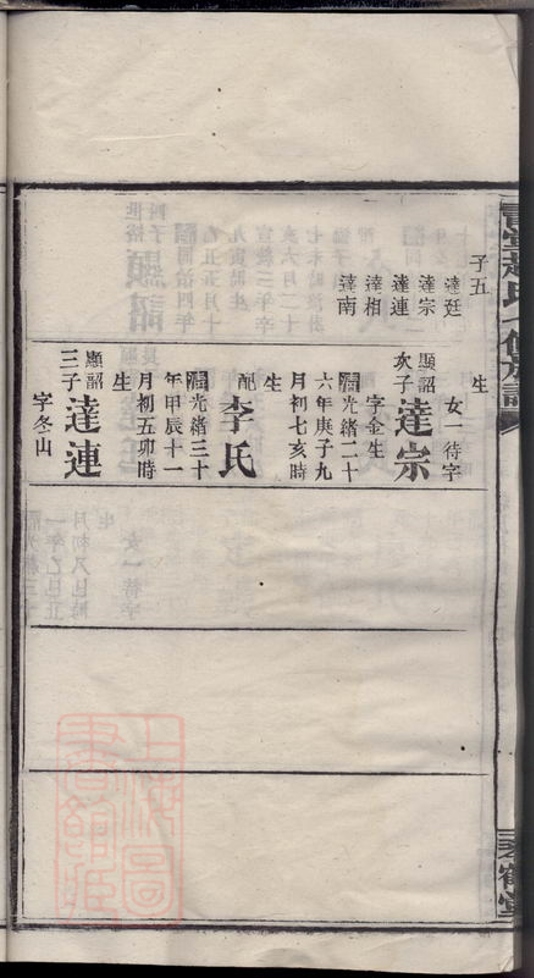 子五
達廷
達宗
達連
達相
達南
生
女一待字
顯詔
次子
達宗
字金生
清光緒二十
六年庚子九
月初七亥時
生
配
李氏
清光緒三十
年甲辰十一
月初五卯時
生
顯詔
三子
達連
字冬山
琴鶴堂